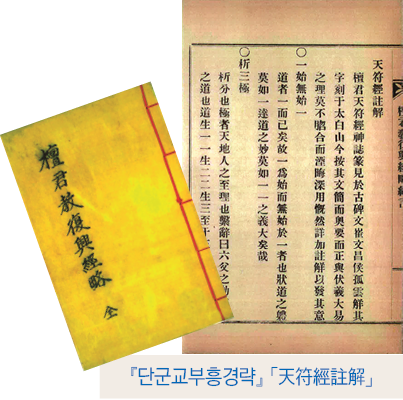 檀君敎復興經略
全
天符經註解
檀君天符經神誌篆見於古碑文崔文昌侯孤雲解其
字刻于太白山今按其文簡而奧要而正與伏羲大易
之理莫不脗合而湮晦深用慨然詳加註解以發其意
○一始無始一
道者一而已矣故一爲始而無始於一者也狀道之軆
莫如一達道之妙莫如一一之義大矣哉
○析三極
析分也極者天地人之至理也繫辭曰六爻之動
之道也道生一一生二二生三至
『단군교부흥경략』, 「天符經註解」